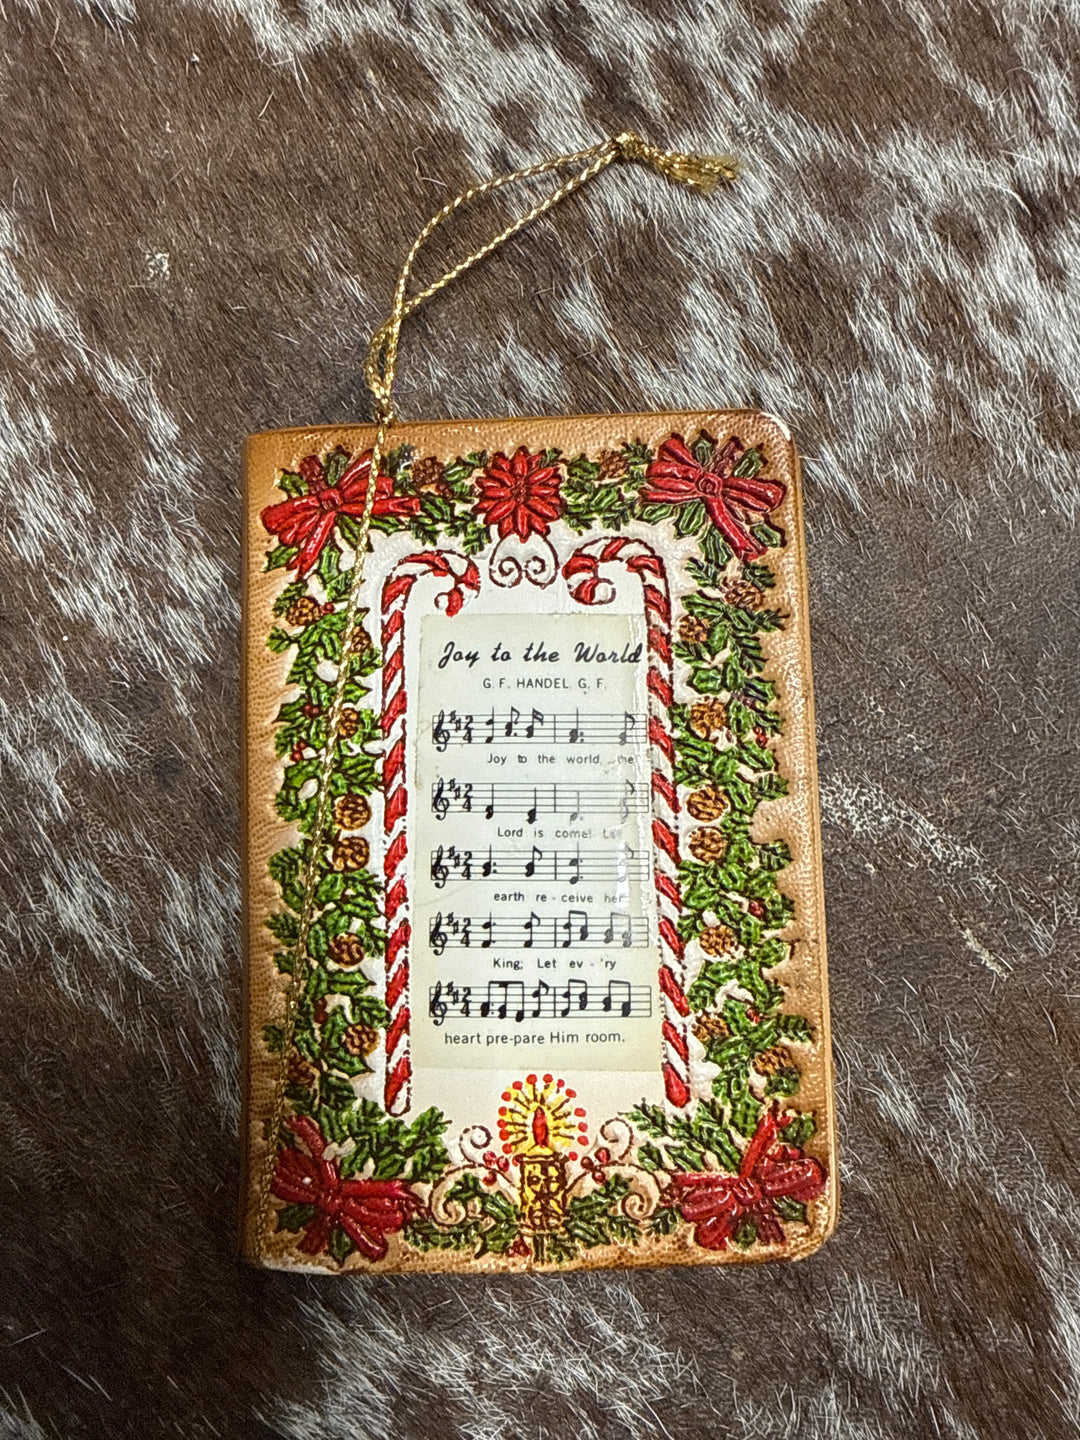 Joy to the World
G. F. HANDEL, G. F.
Joy to the world, the
Lord is come! Let
earth re - ceive her
King; Let ev - 'ry
heart pre-pare Him room.